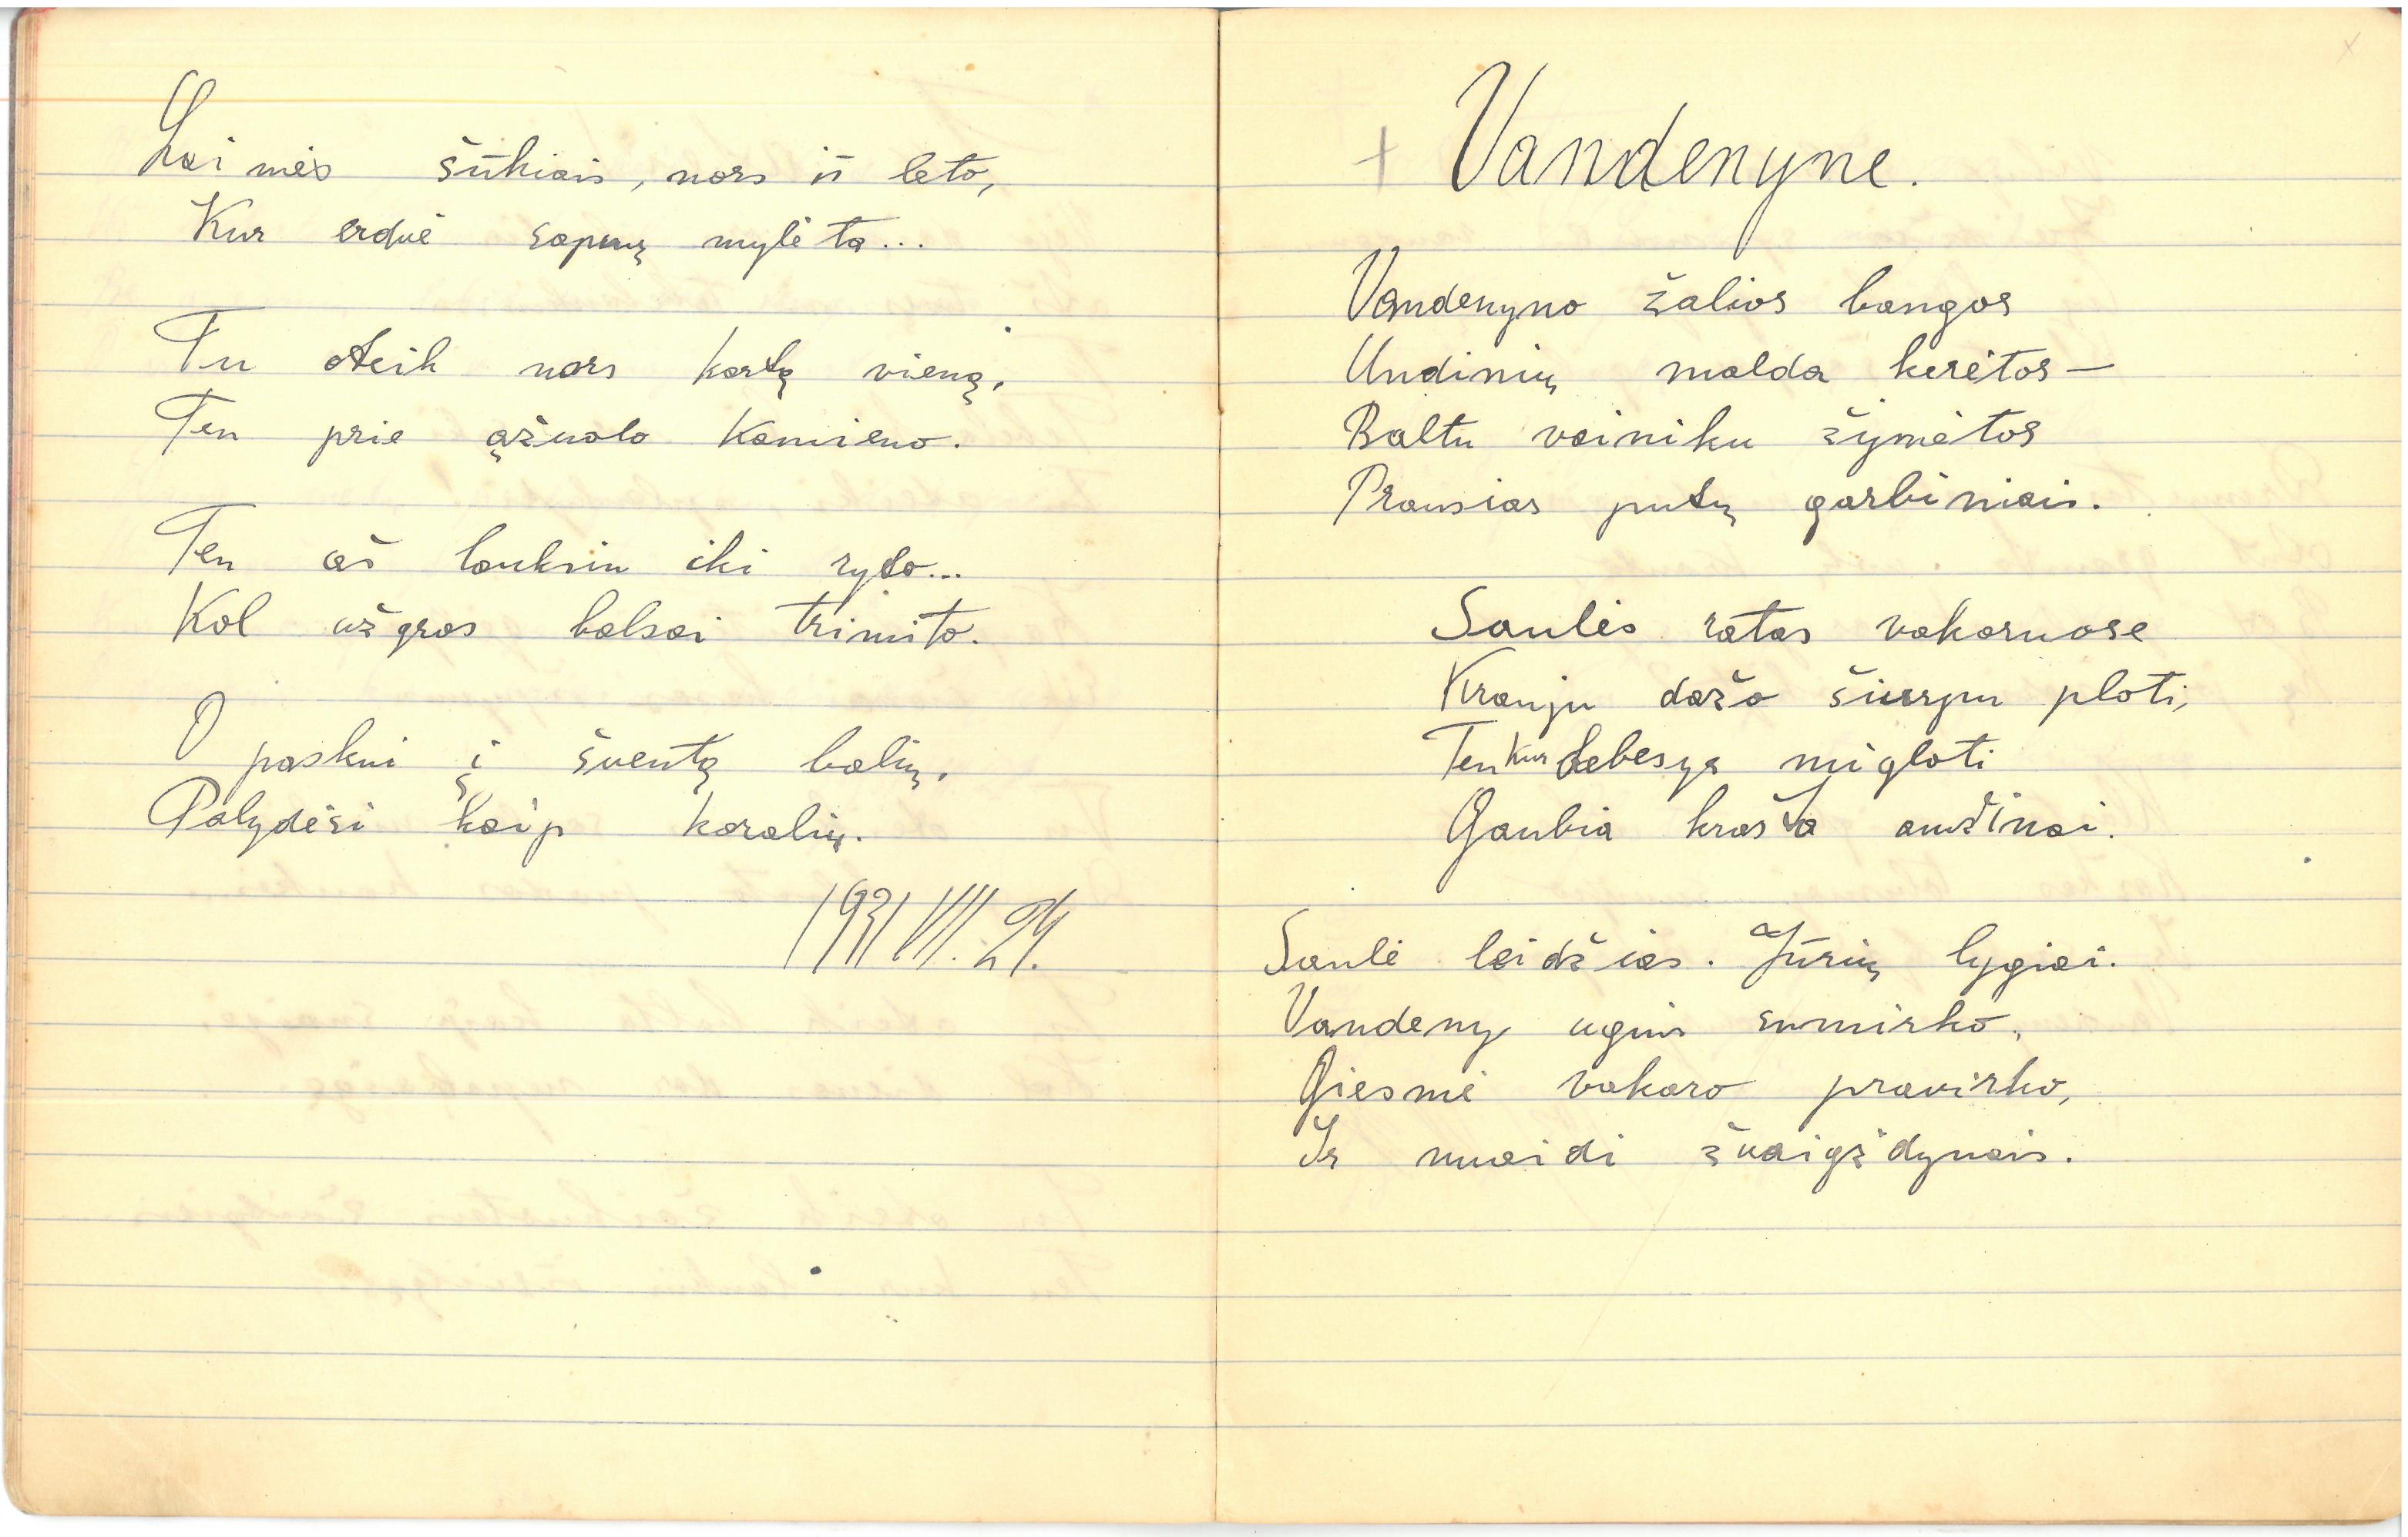 Laimės šūkiais, nors iš lėto,
Kur erdvė sapnų mylėta...
Tu ateik nors kartą vieną,
Ten prie ąžuolo kamieno.
Ten aš lauksiu iki ryto...
Kol užgros balsai trimito.
O paskui į šventą balių,
Palydėsi kaip karalių.
1931 VII. 24.
+ Vandenyne.
Vandenyno žalios bangos
Undinių malda kerėtos —
Baltu vainiku žymėtos
Prausias putų garbiniais.
Saulės ratas vakaruose
Krauju dažo šiurpu plotį,
Ten kur debesys migloti
Gaubia kraštą amžinai.
Saulė leidžias. Jūrių lygiai.
Vandeny ugnis sumirko,
Giesmė vakaro pravirko,
Ir nuaidi žvaigždynais.